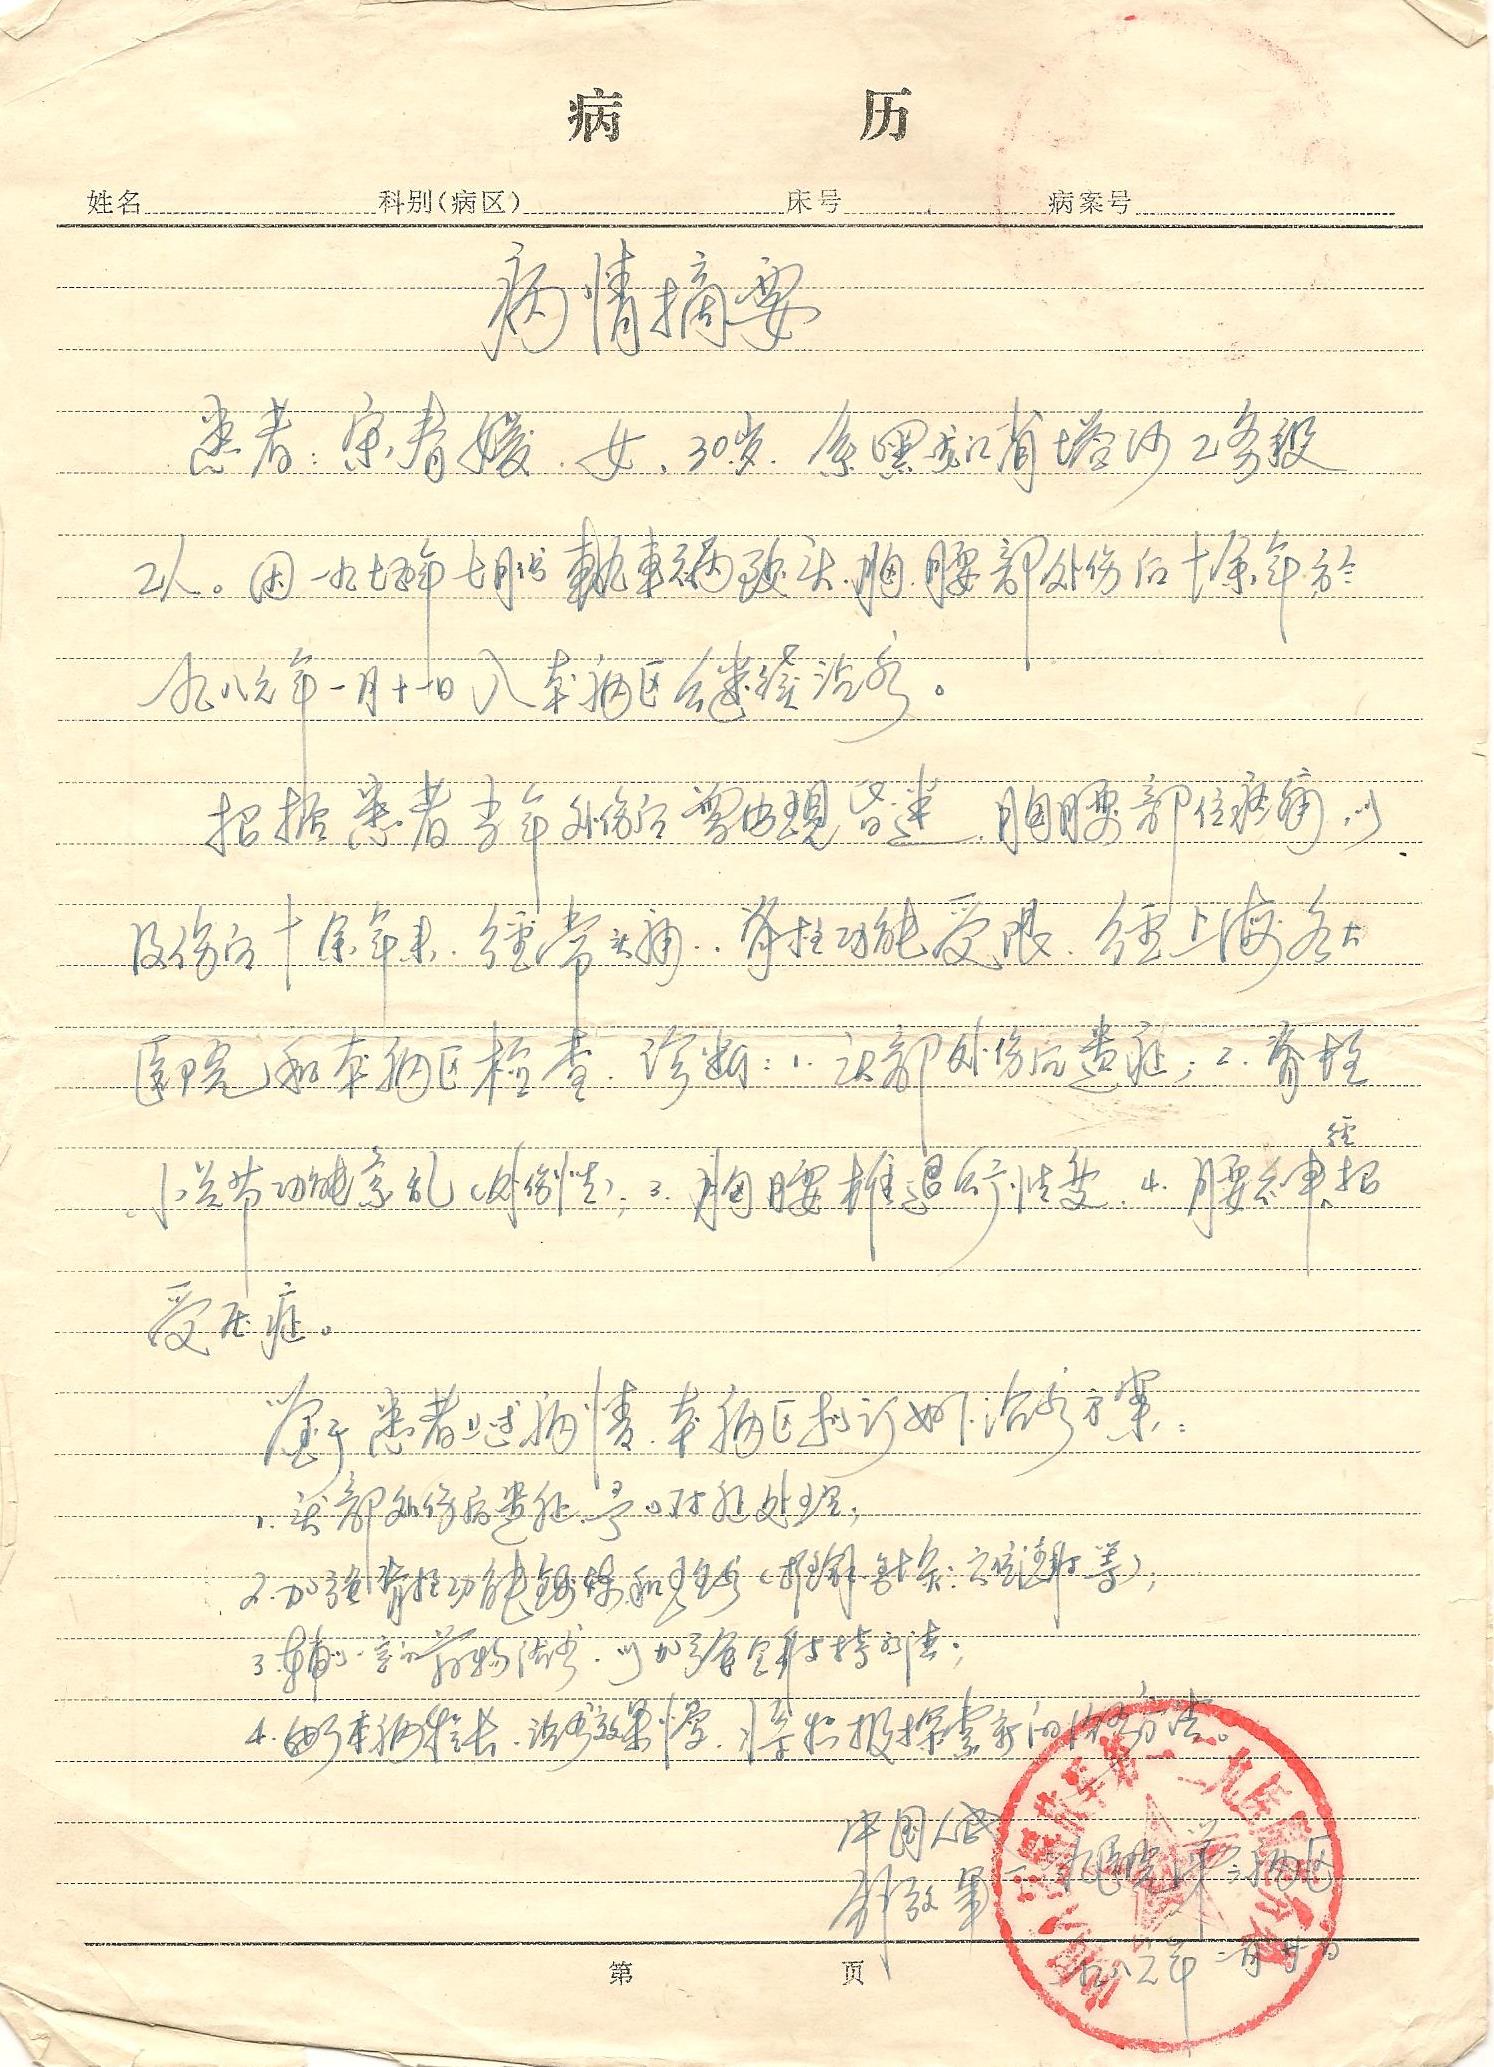 病 历
姓名 科别(病区) 床号 病案号
病情摘要
患者:宋青媛.女、30岁.系黑龙江省塔沙工务段
工人。因一九七五年七月份 車祸致头.胸.腰部外伤后十余年於
一九八六年一月十一日入本病区继续治疗。
根据患者当年外伤后曾出现昏迷.胸腰部位疼痛.以
及伤后十余年来.经常头痛..脊柱功能受限.经上海各大
医院和本病区检查.诊断:1.头部外伤后遗症;2.脊柱
小关节功能紊乱(外伤性);3.胸腰椎退行性变.4.腰神经根
受压症。
鉴于患者上述病情.本病区拟订如下治疗方案:
1.头部外伤后遗症.予以对症处理;
2.加强脊柱功能锻炼和理疗(推拿.针灸.穴位注射等);
3.辅以一定的药物治疗.以加强支持疗法;
4.由于本病程长.治疗效果慢.将积极探索新的治疗方法。
中国人民
解放军一 九医院第 病区
一九八六年 月廿 日
第 页